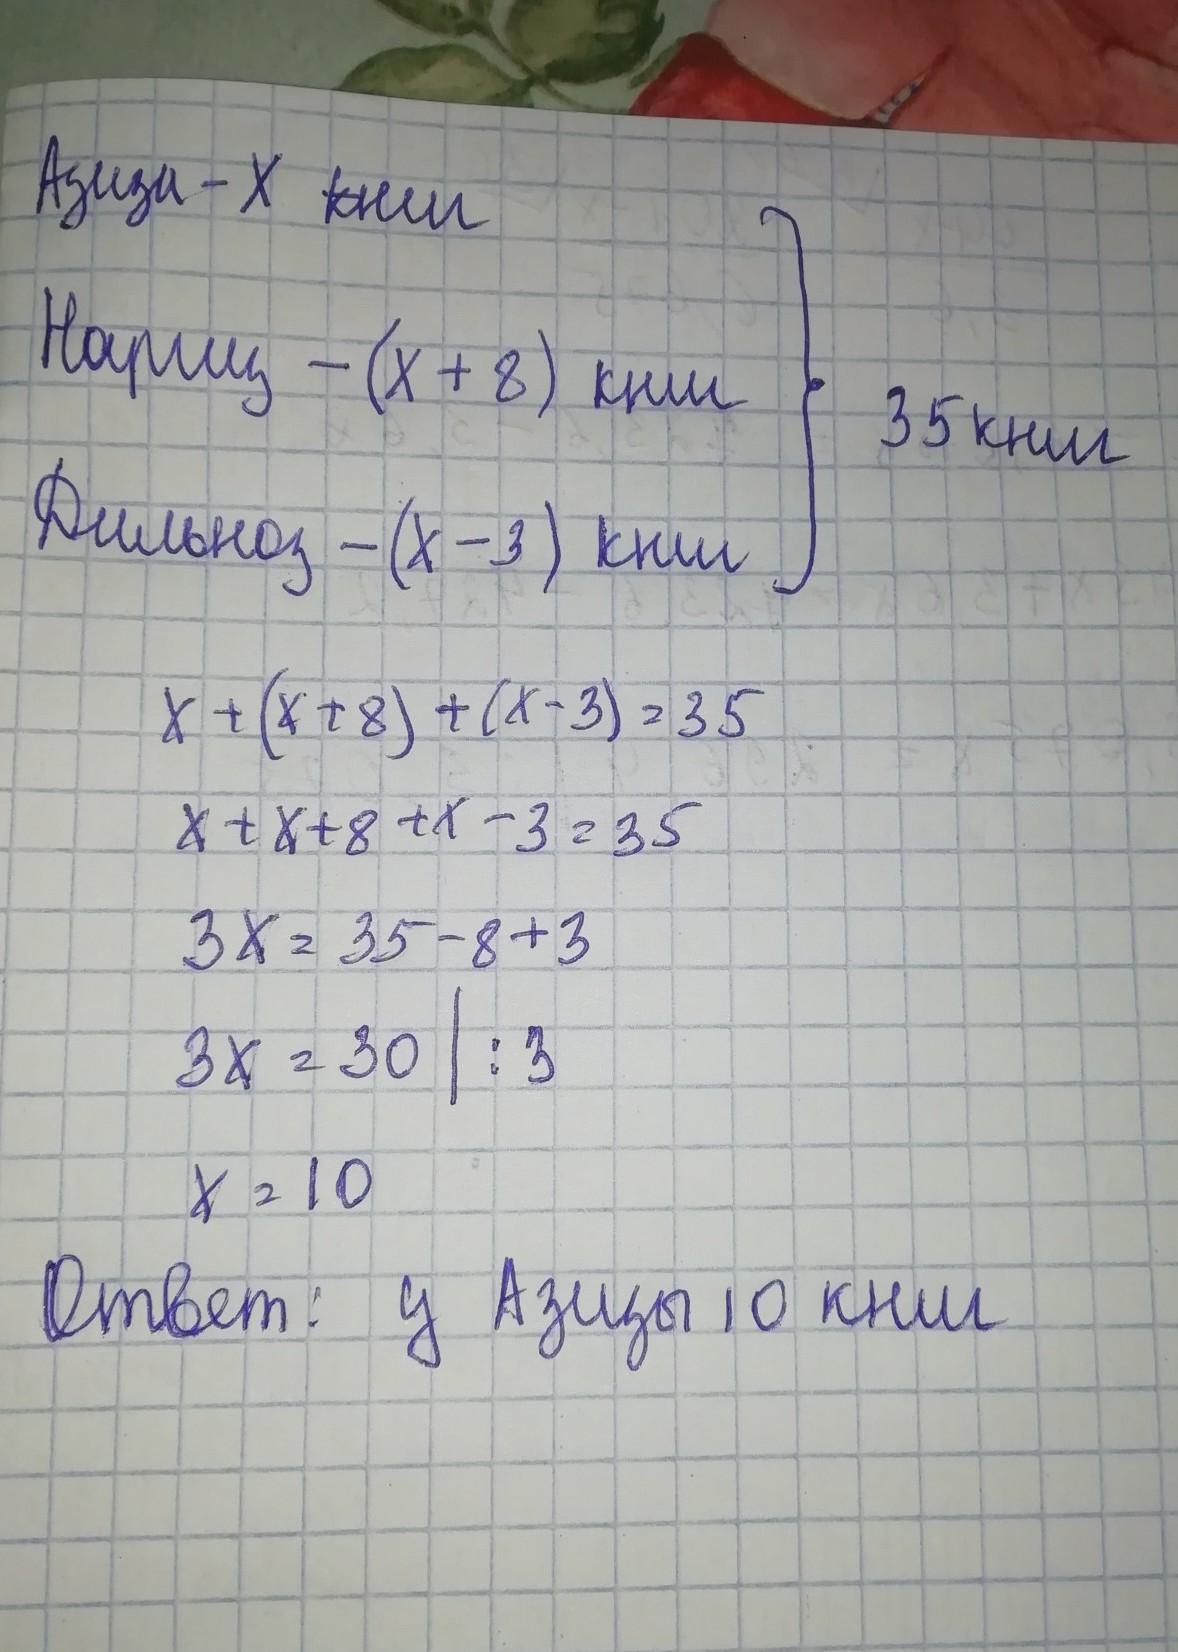 Азиза - х книг
Наргиз - (х + 8) книг
35 книг
Дильноз - (х - 3) книг
х + (х + 8) + (х - 3) = 35
х + х + 8 + х - 3 = 35
3х = 35 - 8 + 3
3х = 30 | : 3
х = 10
Ответ: у Азизы 10 книг